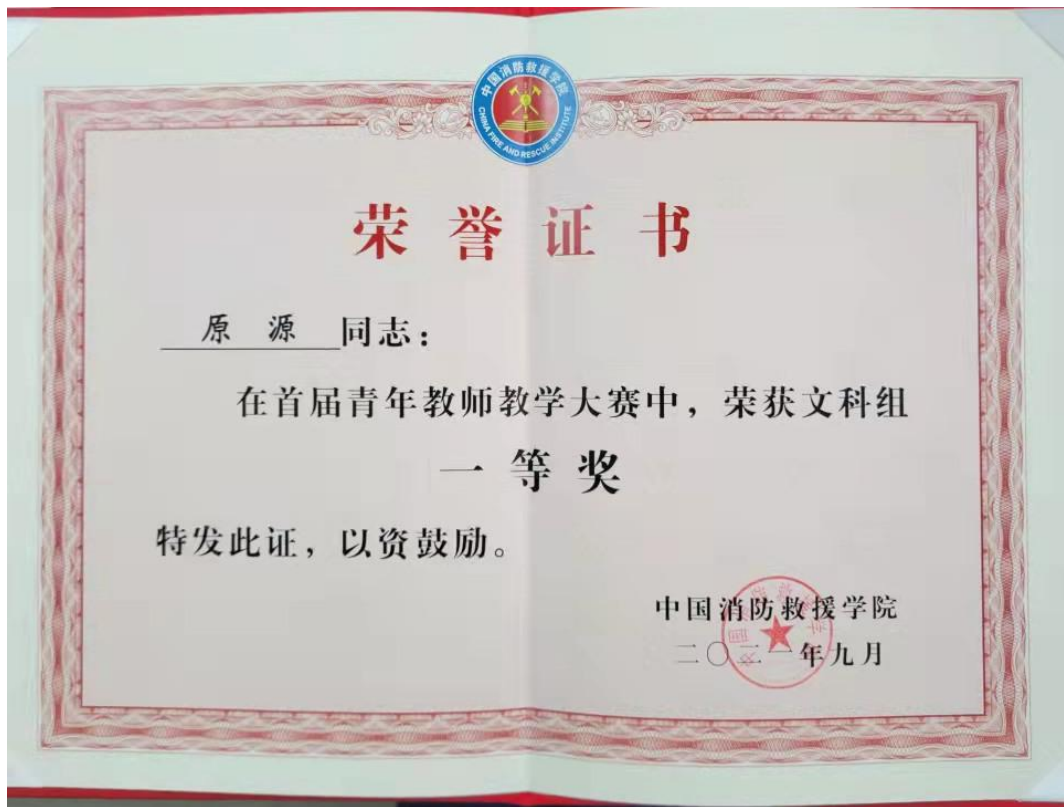 中国消防救援学院
CHINA FIRE AND RESCUE INSTITUTE
荣誉证书
原源同志：
在首届青年教师教学大赛中，荣获文科组
一等奖
特发此证，以资鼓励。
中国消防救援学院
二〇二一年九月